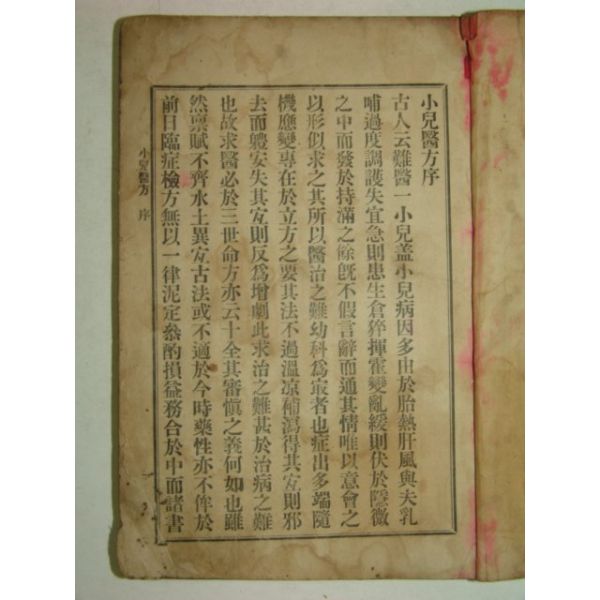 小兒醫方序
古人云難醫一小兒盖小兒病因多由於胎熱肝風與夫乳
哺過度調護失宜急則患生倉猝揮霍變亂緩則伏於隱微
之中而發於持滿之餘旣不假言辭而通其情唯以意會之
以形似求之其所以醫治之難幼科爲㝡者也症出多端隨
機應變專在於立方之要其法不過溫凉補瀉得其冝則邪
去而軆安失其冝則反爲增劇此求治之難甚於治病之難
也故求醫必於三世命方亦云十全其審愼之義何如也雖
然稟賦不齊水土異冝古法或不適於今時藥性亦不侔於
前日臨症檢方無以一律泥定叅酌損益務合於中而諸書
小兒醫方 序